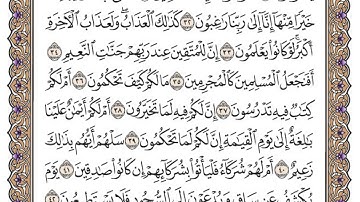 خَيْرًا مِّنْهَآ إِنَّآ إِلَىٰ رَبِّنَا رَٰغِبُونَ ٣٢ كَذَٰلِكَ ٱلْعَذَابُ ۖ وَلَعَذَابُ ٱلْءَاخِرَةِ
أَكْبَرُ ۚ لَوْ كَانُوا۟ يَعْلَمُونَ ٣٣ إِنَّ لِلْمُتَّقِينَ عِندَ رَبِّهِمْ جَنَّٰتِ ٱلنَّعِيمِ ٣٤
أَفَنَجْعَلُ ٱلْمُسْلِمِينَ كَٱلْمُجْرِمِينَ ٣٥ مَا لَكُمْ كَيْفَ تَحْكُمُونَ ٣٦ أَمْ لَكُمْ
كِتَٰبٌ فِيهِ تَدْرُسُونَ ٣٧ إِنَّ لَكُمْ فِيهِ لَمَا تَخَيَّرُونَ ٣٨ أَمْ لَكُمْ أَيْمَٰنٌ عَلَيْنَا
بَٰلِغَةٌ إِلَىٰ يَوْمِ ٱلْقِيَٰمَةِ ۙ إِنَّ لَكُمْ لَمَا تَحْكُمُونَ ٣٩ سَلْهُمْ أَيُّهُم بِذَٰلِكَ
زَعِيمٌ ٤٠ أَمْ لَهُمْ شُرَكَآءُ فَلْيَأْتُوا۟ بِشُرَكَآئِهِمْ إِن كَانُوا۟ صَٰدِقِينَ ٤١ يَوْمَ
يُكْشَفُ عَن سَاقٍ وَيُدْعَوْنَ إِلَى ٱلسُّجُودِ فَلَا يَسْتَطِيعُونَ ٤٢